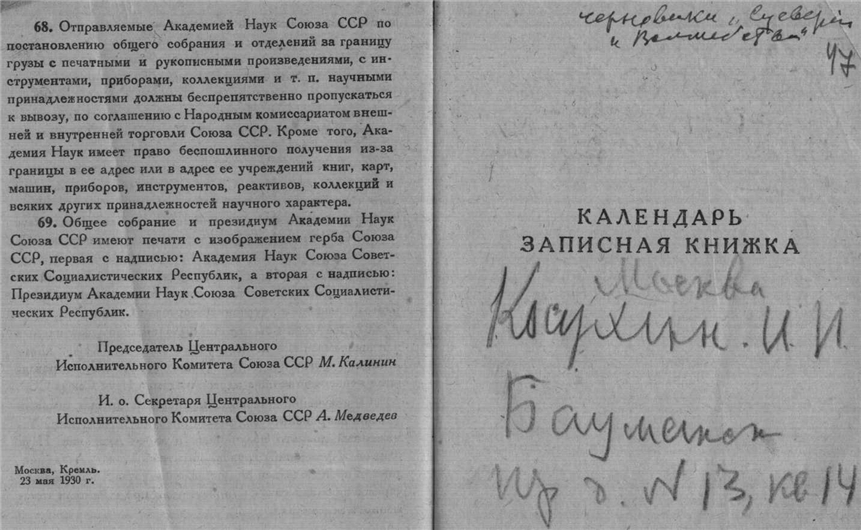 68. Отправляемые Академией Наук Союза ССР по
постановлению общего собрания и отделений за границу
грузы с печатными и рукописными произведениями, с ин-
струментами, приборами, коллекциями и т. п. научными
принадлежностями должны беспрепятственно пропускаться
к вывозу, по соглашению с Народным комиссариатом внеш-
ней и внутренней торговли Союза ССР. Кроме того, Ака-
демия Наук имеет право беспошлинного получения из-за
границы в ее адрес или в адрес ее учреждений книг, карт,
машин, приборов, инструментов, реактивов, коллекций и
всяких других принадлежностей научного характера.
69. Общее собрание и президиум Академии Наук
Союза ССР имеют печати с изображением герба Союза
ССР, первая с надписью: Академия Наук Союза Совет-
ских Социалистических Республик, а вторая с надписью:
Президиум Академии Наук Союза Советских Социалисти-
ческих Республик.
Председатель Центрального
Исполнительного Комитета Союза ССР М. Калинин
И. о. Секретаря Центрального
Исполнительного Комитета Союза ССР А. Медведев
Москва, Кремль.
23 мая 1930 г.
черновики „Суеверия
и Волшебства"
47
КАЛЕНДАРЬ
ЗАПИСНАЯ КНИЖКА
Москва
И. И.
Бауманск
д. N 13, кв 14